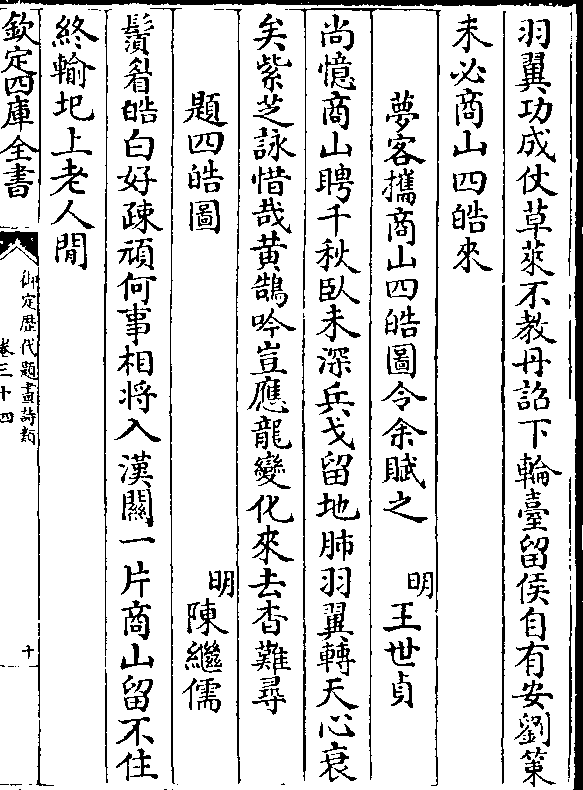 羽翼功成仗草萊不教丹詔下輪臺留侯自有安劉策
未必商山四皓來
夢客攜商山四皓圖令余賦之 明 王世貞
尚憶商山聘千秋臥未深兵戈留地肺羽翼轉天心衰
矣紫芝詠惜哉黃鵠吟豈應龍變化來去杳難尋
題四皓圖 明 陳繼儒
鬚眉皓白好疎頑何事相將入漢關一片商山留不住
終輸圯上老人閒
欽定四庫全書
御定歷代題畫詩類
卷三十四
十